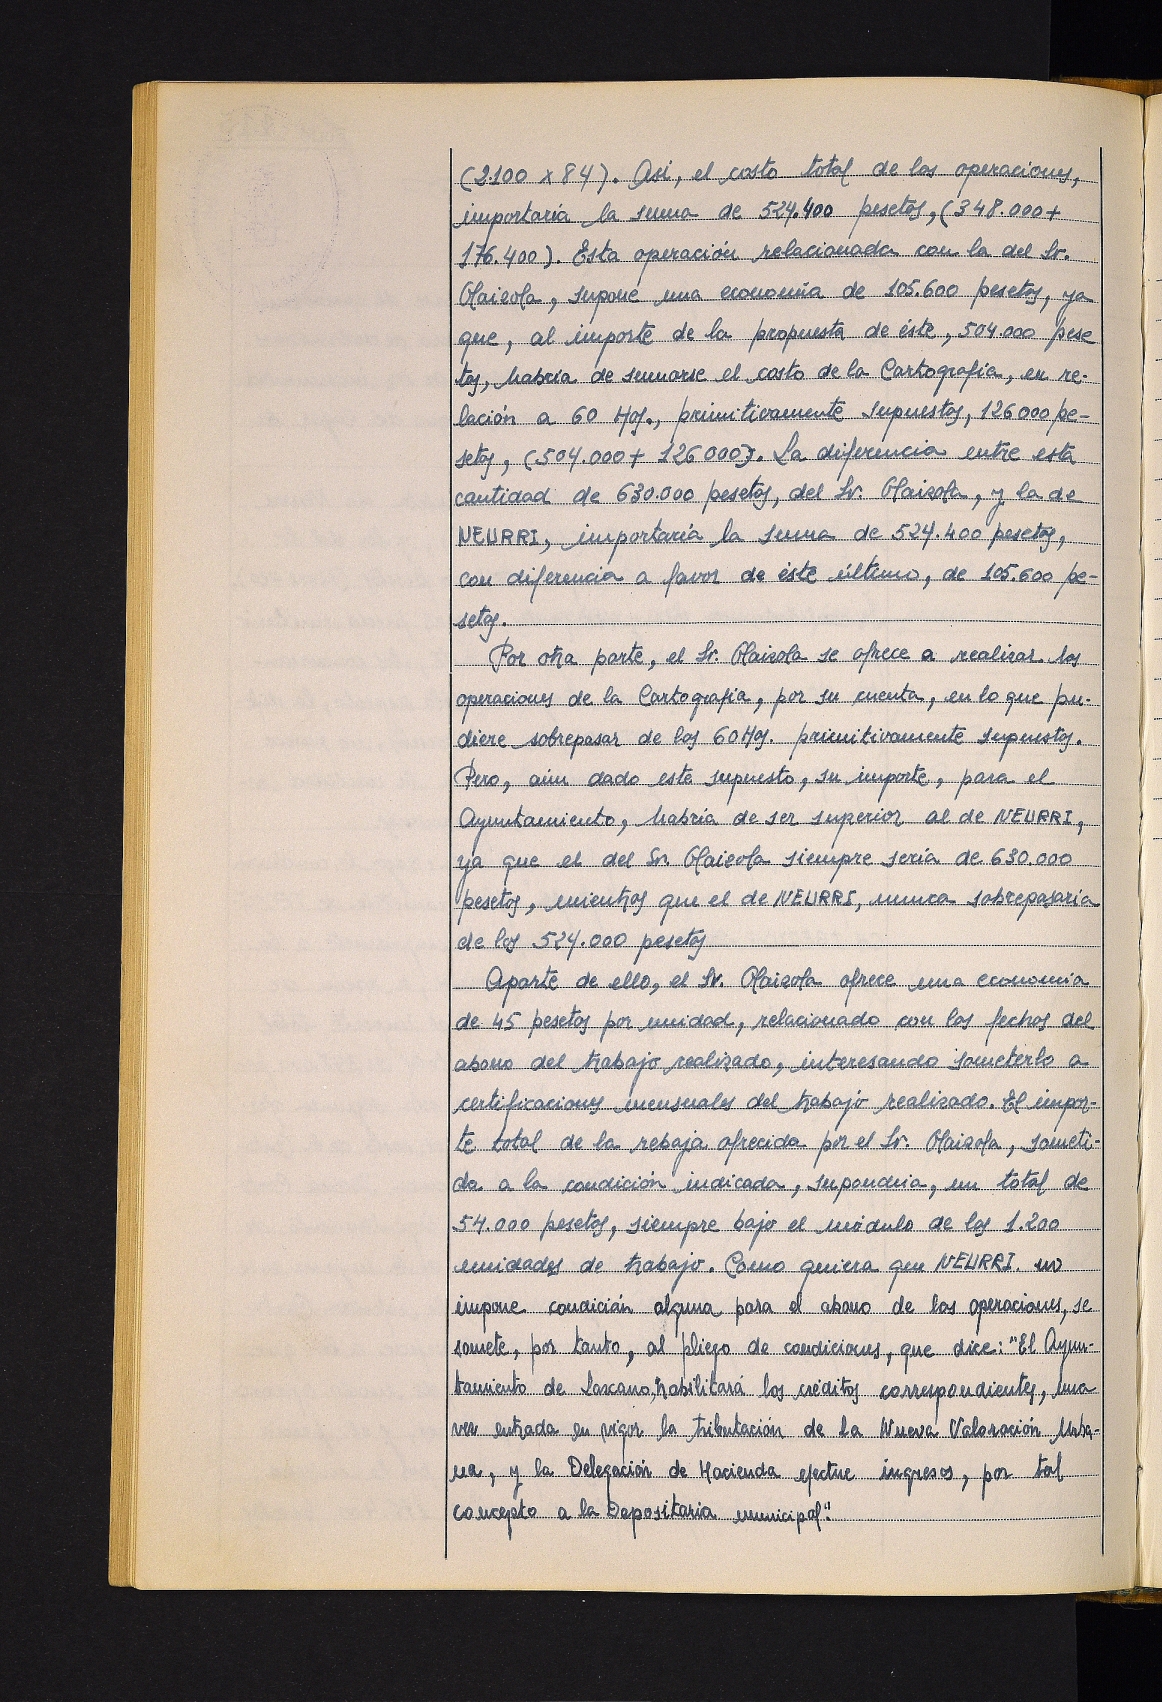 (2.100 x 84). Así, el costo total de las operaciones,
importaría la suma de 524.400 pesetas, (348.000+
176.400). Esta operación relacionada con la del Sr.
Olaizola, supone una economía de 105.600 pesetas, ya
que, al importe de la propuesta de éste, 504.000 pese
tas, habría de sumarse el costo de la Cartografía, en re-
lación a 60 Has., primitivamente supuestas, 126000 pe-
setas, (504.000+ 126000). La diferencia entre esta
cantidad de 630.000 pesetas, del Sr. Olaizola, y la de
NEURRI, importaría la suma de 524.400 pesetas,
con diferencia a favor de éste último, de 105.600 pe-
setas.
Por otra parte, el Sr. Olaizola se ofrece a realizar las
operaciones de la Cartografía, por su cuenta, en lo que pu-
diere sobrepasar de las 60 Has. primitivamente supuestas.
Pero, aún dado este supuesto, su importe, para el
Ayuntamiento, habría de ser superior al de NEURRI,
ya que el del Sr. Olaizola siempre sería de 630.000
pesetas, mientras que el de NEURRI, nunca sobrepasaría
de las 524.000 pesetas
Aparte de ello, el Sr. Olaizola ofrece una economía
de 45 pesetas por unidad, relacionado con las fechas del
abono del trabajo realizado, interesando someterlo a
certificaciones mensuales del trabajo realizado. El impor-
te total de la rebaja ofrecida por el Sr. Olaizola, someti-
da a la condición indicada, supondría, un total de
54.000 pesetas, siempre bajo el módulo de las 1.200
unidades de trabajo. Como quiera que NEURRI. no
impone condición alguna para el abono de las operaciones, se
somete, por tanto, al pliego de condiciones, que dice: "El Ayun-
tamiento de Lazcano, habilitará los créditos correspondientes, una
vez entrada en vigor la tributación de la Nueva Valoración Urba-
na, y la Delegación de Hacienda efectue ingresos, por tal
concepto a la Depositaría municipal."